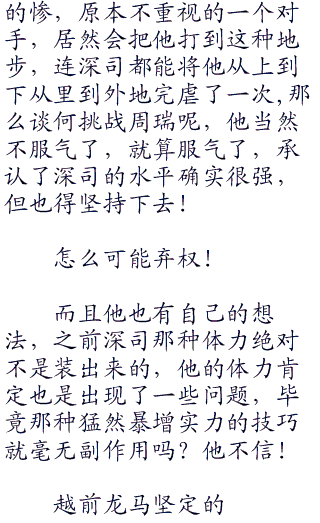 的惨，原本不重视的一个对
手，居然会把他打到这种地
步，连深司都能将他从上到
下从里到外地完虐了一次,那
么谈何挑战周瑞呢，他当然
不服气了，就算服气了，承
认了深司的水平确实很强，
但也得坚持下去！
怎么可能弃权！
而且他也有自己的想
法，之前深司那种体力绝对
不是装出来的，他的体力肯
定也是出现了一些问题，毕
竟那种猛然暴增实力的技巧
就毫无副作用吗？他不信！
越前龙马坚定的